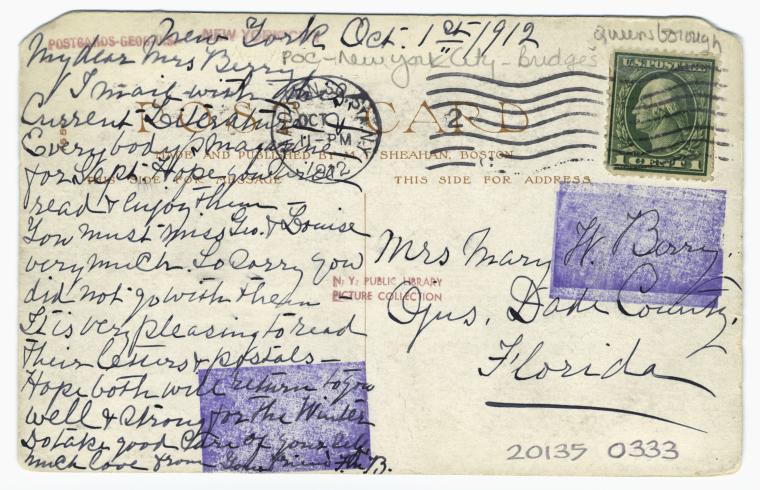 New York Oct. 1st/1912
My dear Mrs Berry
I mail with this
Current Literature &
Everybody's Magazine
for Sept. Hope you will
read & Enjoy them—
You must miss Geo. & Louise
very much. So sorry you
did not go with them—
It is very pleasing to read
their letters & postals—
Hope both will return to you
well & strong for the Winter
Do take good Care of your
much love from Your friend
POSTCARDS-
NEW YORK
POC-New York City-Bridges
Queensborough
POST CARD
MADE AND PUBLISHED BY M. F. SHEAHAN, BOSTON
THIS SIDE FOR MESSAGE
THIS SIDE FOR ADDRESS
OCT
11-PM
1912
2
U.S. POSTAGE
1 CENT 1
Mrs Mary W. Berry,
Ojus, Dade County,
Florida
N. Y. PUBLIC LIBRARY
PICTURE COLLECTION
20135 0333